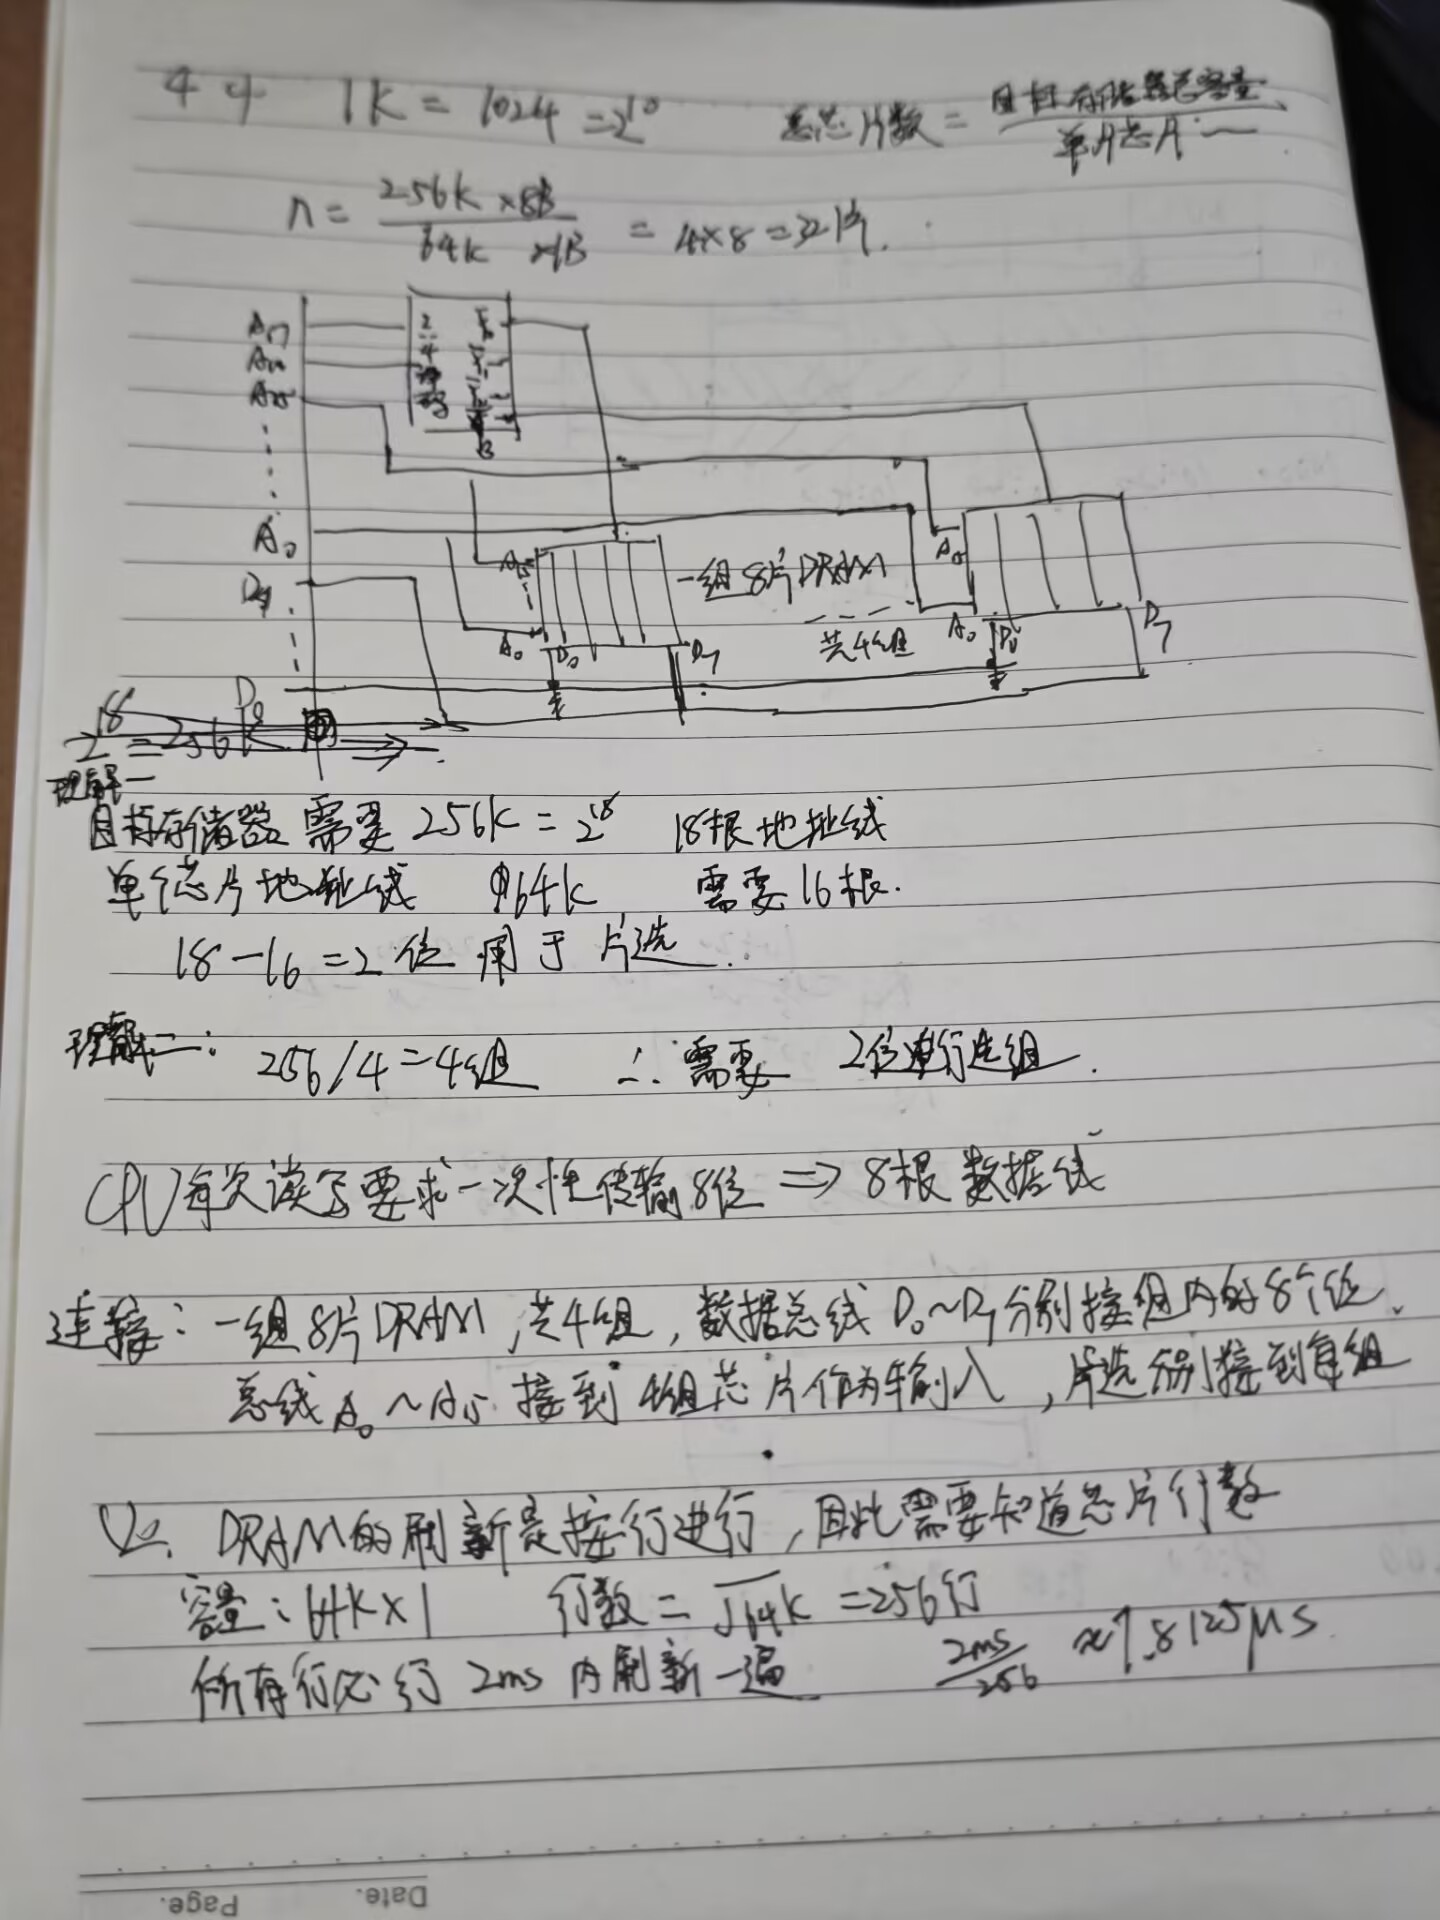 4 4   1K = 1024 = 2^10   总芯片数 = 目标存储器总容量 / 单片芯片 ~
n = 256K ×8B / 64K ×1B = 4×8=32片.
A17
A16
A15
2-4译码
A0
D7
D0
A15
A0
D0
D7
一组8片DRAM
共4组
A15
A0
D0
D7
2^18 = 256K
理解一
目标存储器 需要 256K = 2^18   18根地址线
单个芯片地址线   64K   需要16根.
18-16=2位 用于 片选.
理解二:   256/4=4组   ∴ 需要 2位进行选组.
CPU每次读写要求一次性传输8位 ⇒ 8根数据线
连接: 一组8片DRAM,共4组,数据总线 D0~D7分别接组内的8个位.
总线A0~A15.接到4组芯片作为输入,片选分别接到每组
(2). DRAM的刷新是按行进行,因此需要知道芯片行数
容量: 64K×1   行数 = √64K = 256行
所有行必行 2ms 内刷新一遍   2ms/256 ≈7.8125μs
Date.
Page.